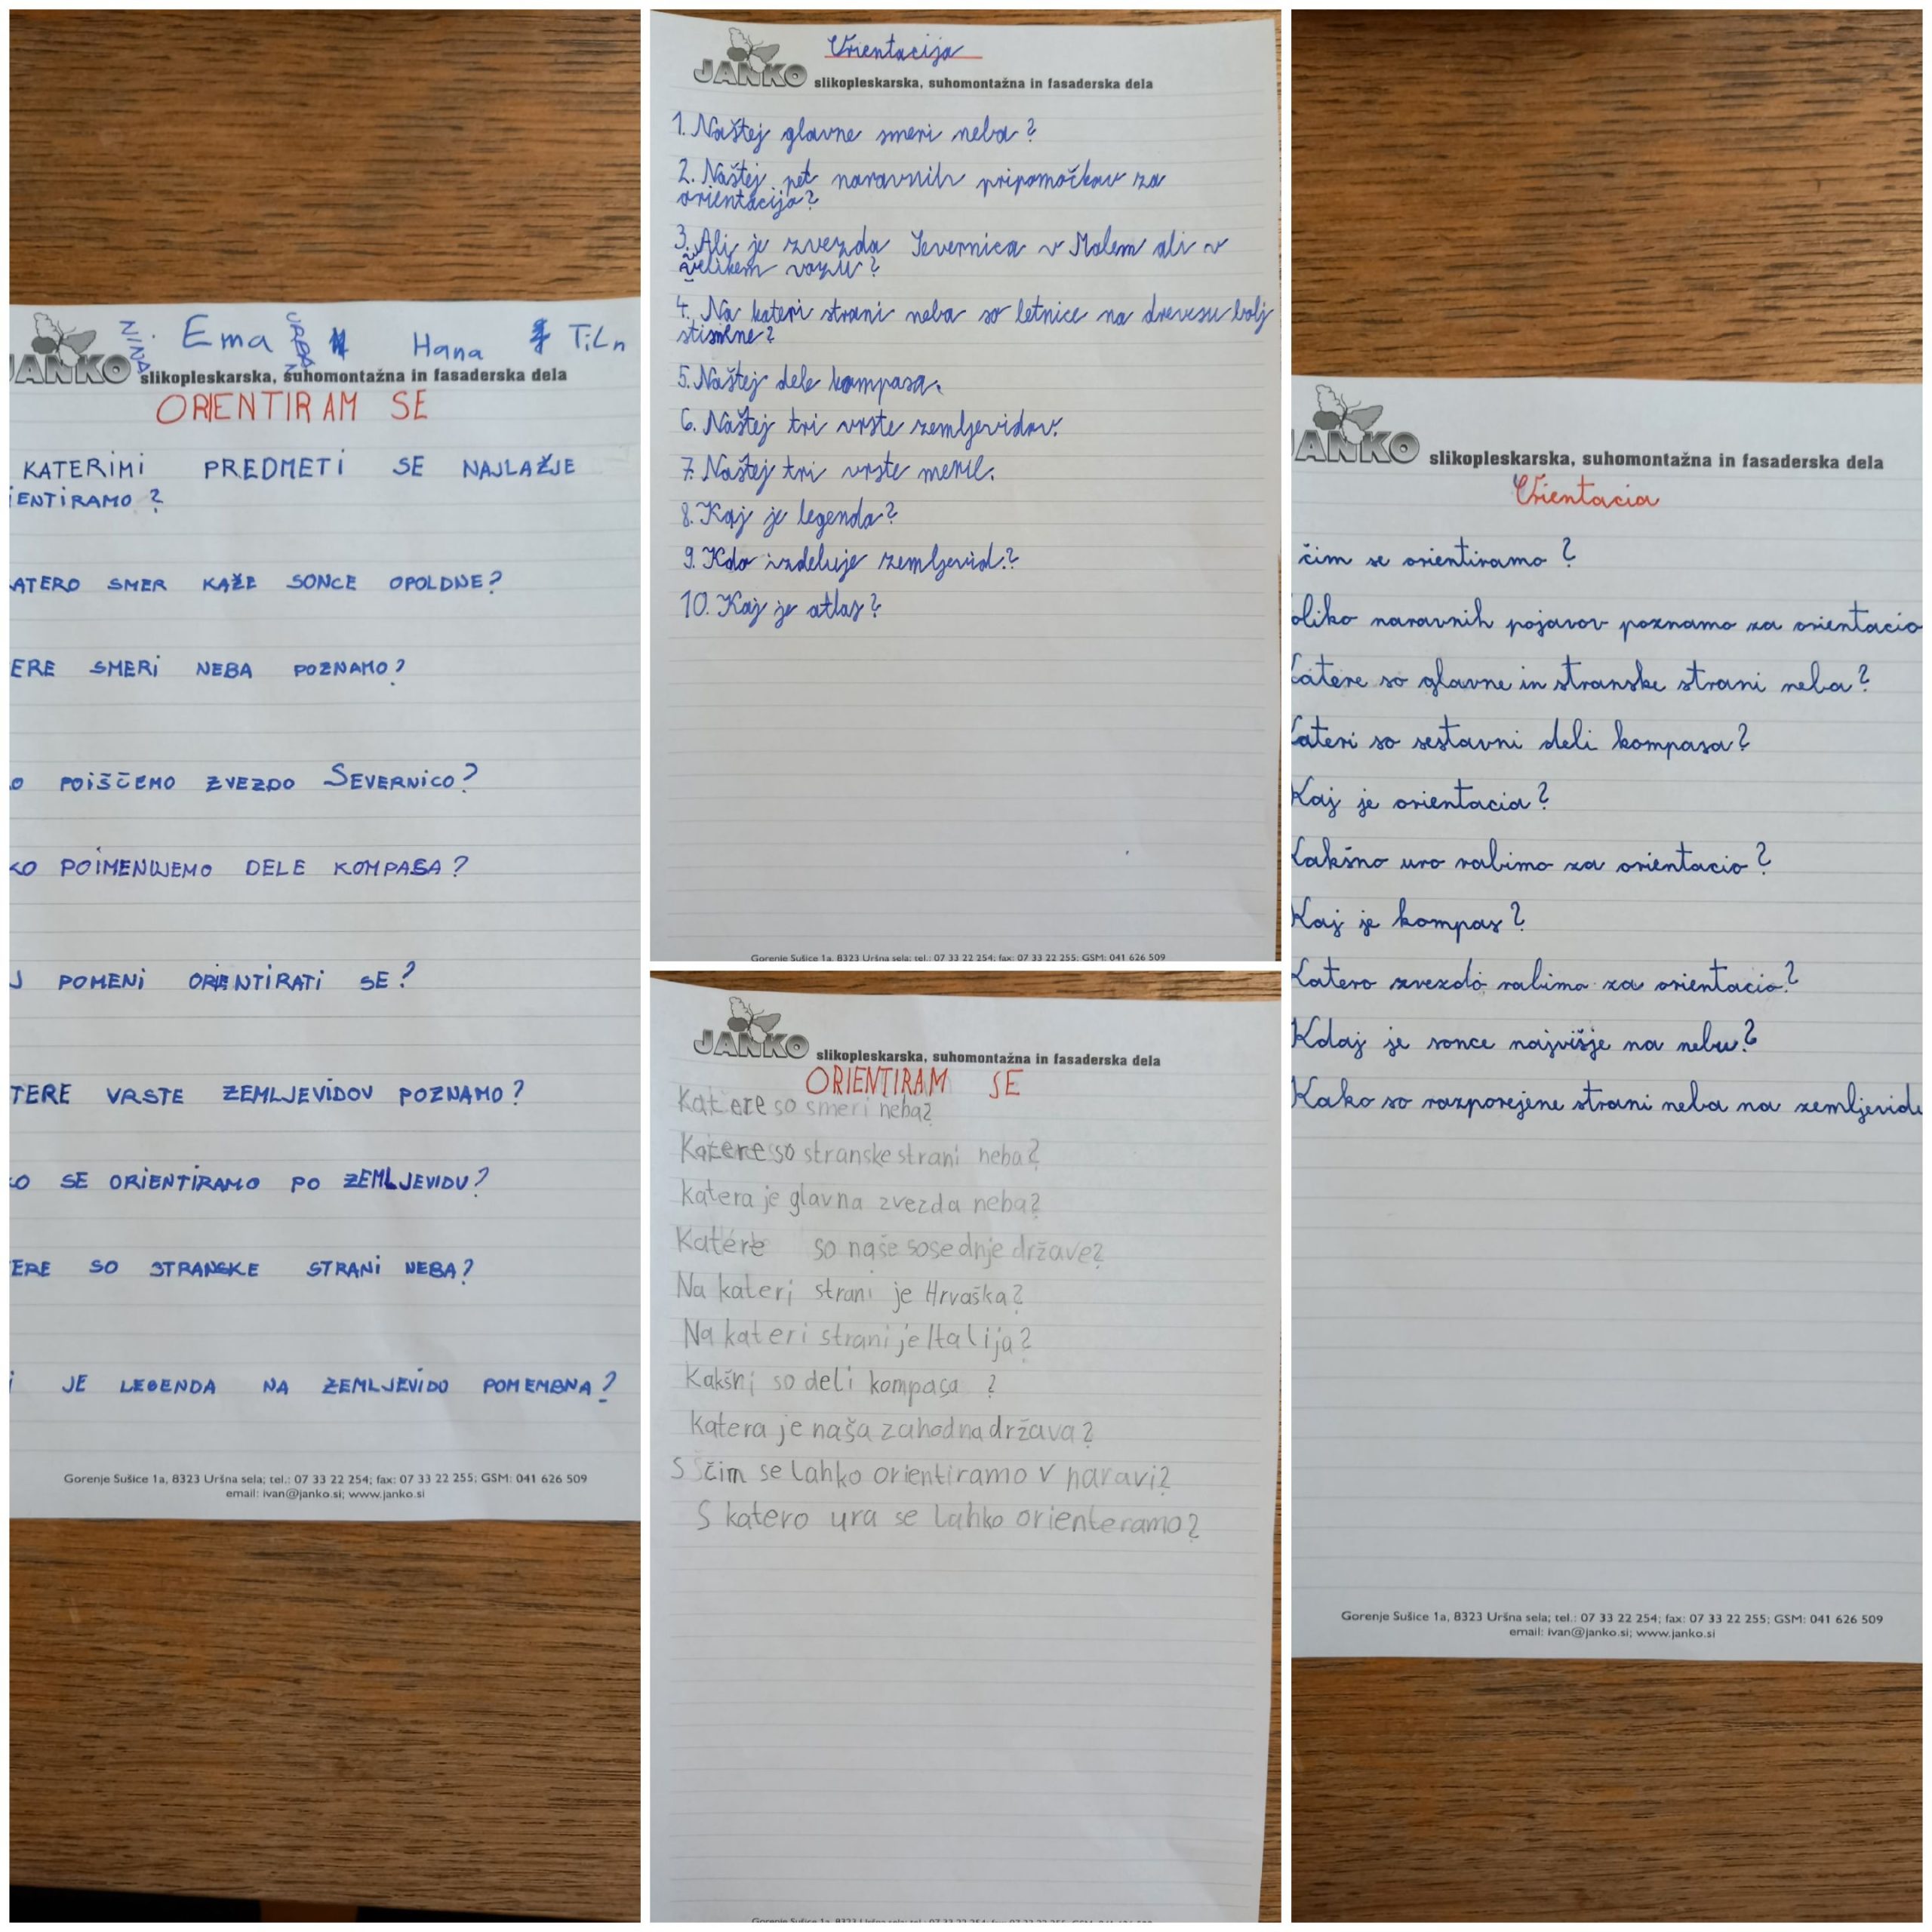 NINA Ema Hana TiLn
JANKO slikopleskarska, suhomontažna in fasaderska dela
ORIENTIRAM SE
KATERIMI PREDMETI SE NAJLAŽJE
IENTIRAMO?
ATERO SMER KAŽE SONCE OPOLDNE?
ERE SMERI NEBA POZNAMO?
O POIŠČEMO ZVEZDO SEVERNICO?
KO POIMENUJEMO DELE KOMPASA?
J POMENI ORIENTIRATI SE?
TERE VRSTE ZEMLJEVIDOV POZNAMO?
O SE ORIENTIRAMO PO ZEMLJEVIDU?
ERE SO STRANSKE STRANI NEBA?
I JE LEGENDA NA ZEMLJEVIDO POMEMBNA?
Gorenje Sušice 1a, 8323 Uršna sela; tel.: 07 33 22 254; fax: 07 33 22 255; GSM: 041 626 509
email: ivan@janko.si; www.janko.si
Orientacija
JANKO slikopleskarska, suhomontažna in fasaderska dela
1. Naštej glavne smeri neba?
2. Naštej pet naravnih pripomočkov za
orientacijo?
3. Ali je zvezda Severnica v Malem ali v
velikem vozu?
4. Na kateri strani neba so letnice na drevesu bolj
stisnene?
5. Naštej dele kompasa.
6. Naštej tri vrste zemljevidov.
7. Naštej tri vrste meril.
8. Kaj je legenda?
9. Kdo izdeluje zemljevid?
10. Kaj je atlas?
Gorenje Sušice 1a, 8323 Uršna sela; tel.: 07 33 22 254; fax: 07 33 22 255; GSM: 041 626 509
JANKO slikopleskarska, suhomontažna in fasaderska dela
ORIENTIRAM SE
Katere so smeri neba?
Katere so stranske strani neba?
katera je glavna zvezda neba?
Katere so naše sosednje države?
Na kateri strani je Hrvaška?
Na kateri strani je Italija?
Kakšni so deli kompasa ?
katera je naša zahodna država?
S čim se lahko orientiramo v naravi?
S katero ura se lahko orienteramo?
JANKO slikopleskarska, suhomontažna in fasaderska dela
Orientacia
čim se orientiramo?
oliko naravnih pojavov poznamo za orientacio
Katere so glavne in stranske strani neba?
Kateri so sestavni deli kompasa?
Kaj je orientacia?
Kakšno uro rabimo za orientacio?
Kaj je kompas?
Katero zvezdo rabimo za orientacio?
Kdaj je sonce najvišje na nebu?
Kako so razporejene strani neba na zemljevidu
Gorenje Sušice 1a, 8323 Uršna sela; tel.: 07 33 22 254; fax: 07 33 22 255; GSM: 041 626 509
email: ivan@janko.si; www.janko.si